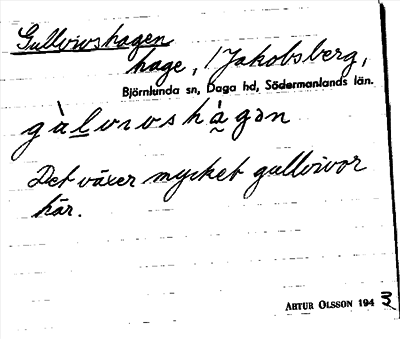 Gullvivshagen
hage, / Jakobsberg,
Björnlunda sn, Daga hd, Södermanlands län.
gàlvivshàgən
Det växer mycket gullvivor
här.
ARTUR OLSSON 1943